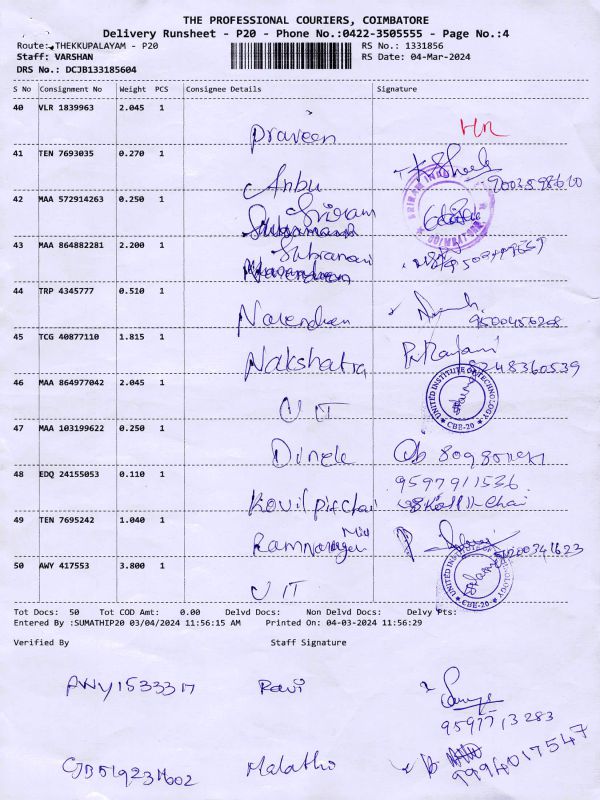 THE PROFESSIONAL COURIERS, COIMBATORE
Delivery Runsheet - P20 - Phone No.:0422-3505555 - Page No.:4
Route: THEKKUPALAYAM - P20 RS No.: 1331856
Staff: VARSHAN RS Date: 04-Mar-2024
DRS No.: DCJB133185604
S No Consignment No Weight PCS Consignee Details Signature
40 VLR 1839963 2.045 1
Praveen HR
41 TEN 7693035 0.270 1
Anbu
42 MAA 572914263 0.250 1
Sriram
43 MAA 864882281 2.200 1
Subramani
44 TRP 4345777 0.510 1
Narendran 9500456208
45 TCG 40877110 1.815 1
Nakshatra P. Rajani
8248360539
46 MAA 864977042 2.045 1
UIT UNITED INSTITUTE OF TECHNOLOGY CBE-20
47 MAA 103199622 0.250 1
48 EDQ 24155053 0.110 1
9597911536
Kovilpitchai
49 TEN 7695242 1.040 1
50 AWY 417553 3.800 1
UIT CBE-20
Tot Docs: 50 Tot COD Amt: 0.00 Delvd Docs: Non Delvd Docs: Delvy Pts:
Entered By :SUMATHIP20 03/04/2024 11:56:15 AM Printed On: 04-03-2024 11:56:29
Verified By Staff Signature
AWY1533317 Ravi
9597713283
Malathi
9994017547